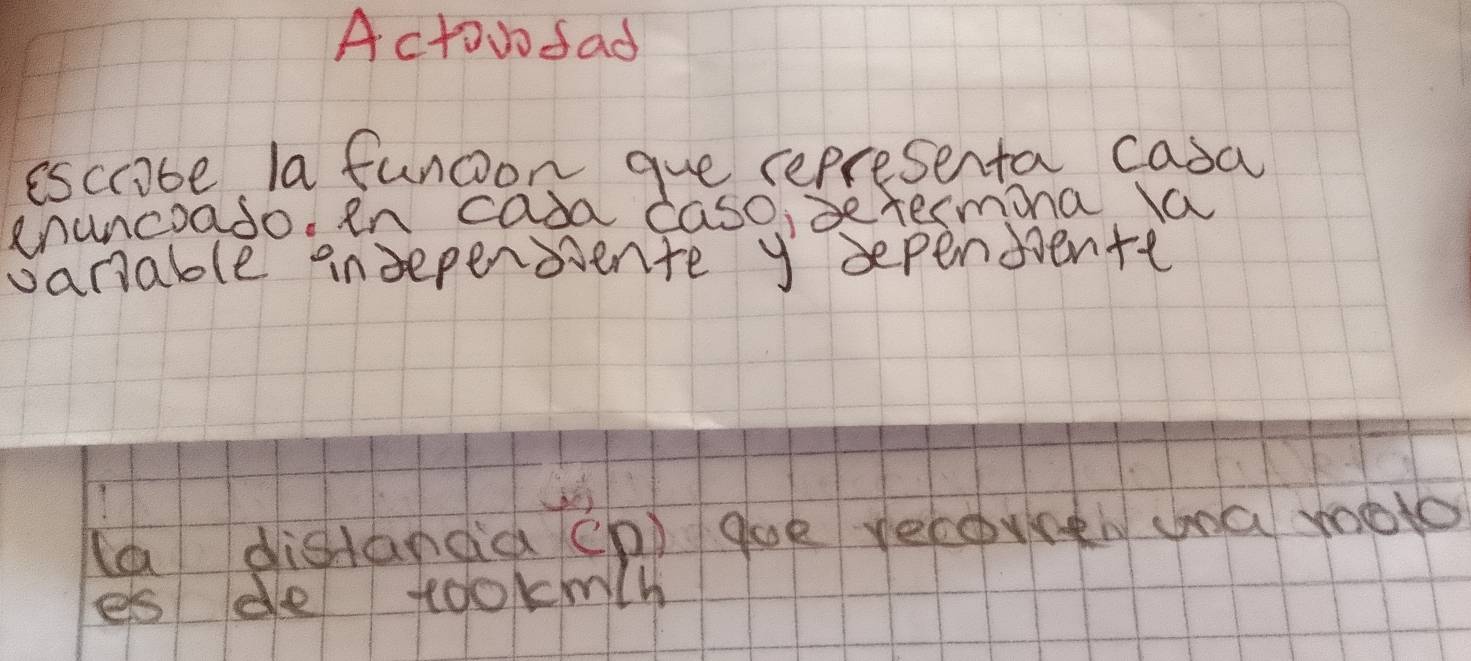 Actividad
escribe la funcion que representa cada
enunciado. en cada caso, determina la
variable independiente y dependiente
la distancia (D) que recorren una moto
es de 100km/h